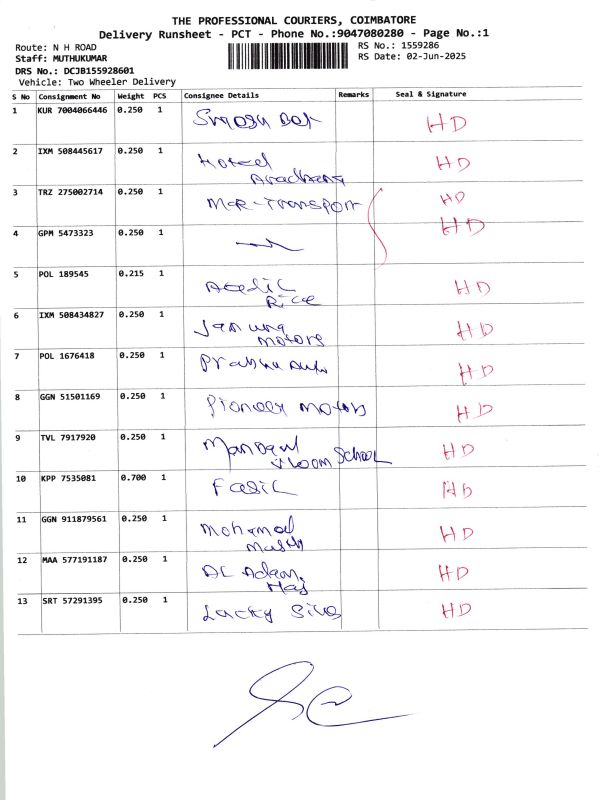 THE PROFESSIONAL COURIERS, COIMBATORE
Delivery Runsheet - PCT - Phone No.:9047080280 - Page No.:1
Route: N H ROAD
RS No.: 1559286
Staff: MUTHUKUMAR
RS Date: 02-Jun-2025
DRS No.: DCJB155928601
Vehicle: Two Wheeler Delivery
S No Consignment No Weight PCS Consignee Details Remarks Seal & Signature
1 KUR 7004066446 0.250 1 HD
2 IXM 508445617 0.250 1 HD
3 TRZ 275002714 0.250 1 MGR-Transport HD
4 GPM 5473323 0.250 1 HD
5 POL 189545 0.215 1 HD
Rice
6 IXM 508434827 0.250 1 HD
motors
7 POL 1676418 0.250 1 Prabhu Auto HD
8 GGN 51501169 0.250 1 Pioneer motors HD
9 TVL 7917920 0.250 1 HD
School
10 KPP 7535081 0.700 1 Fasil HD
11 GGN 911879561 0.250 1 Mohamed HD
12 MAA 577191187 0.250 1 HD
13 SRT 57291395 0.250 1 Lucky HD